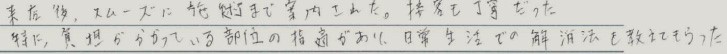 来店後、スムーズに施術まで案内された。接客も丁寧だった
特に、負担がかかっている部位の指摘があり、日常生活での解消法を教えてもらった